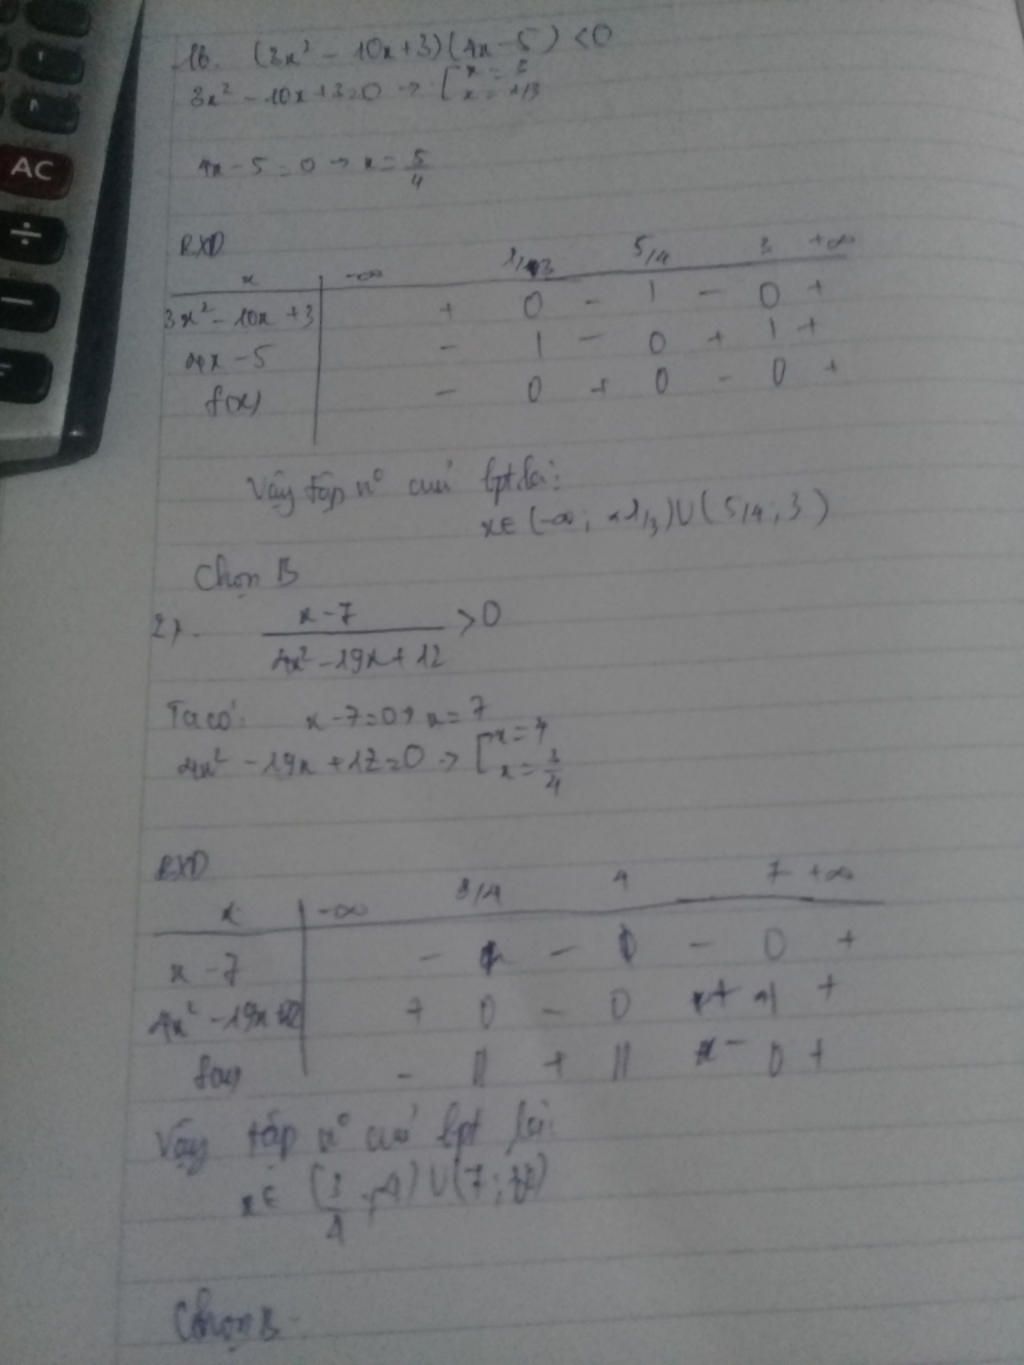 AC
÷
16. (3x² - 10x + 3)(4x - 5) < 0
3x² - 10x + 3 = 0 → [ x = 3
x = 1/3
4x - 5 = 0 → x = 5/4
BXD
x -∞ 1/3 5/4 3 +∞
3x² - 10x + 3 + 0 - | - 0 +
4x - 5 - | - 0 + | +
f(x) - 0 + 0 - 0 +
Vậy tập n⁰ của bpt là:
x ∈ (-∞; 1/3) ∪ (5/4; 3)
Chọn B
x - 7 / 4x² - 19x + 12 > 0
Ta có: x - 7 = 0 → x = 7
4x² - 19x + 12 = 0 → [ x = 4
x = 3/4
BXD
x -∞ 3/4 4 7 +∞
x - 7 - | - | - 0 +
4x² - 19x + 12 + 0 - 0 + | +
f(x) - || + || - 0 +
Vậy tập n⁰ của bpt là:
x ∈ (3/4; 4) ∪ (7; +∞)
Chọn B.